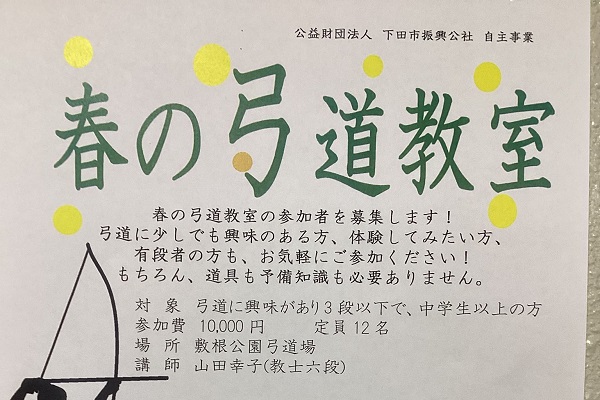 公益財団法人 下田市振興公社 自主事業
春の弓道教室
春の弓道教室の参加者を募集します！
弓道に少しでも興味のある方、体験してみたい方、
有段者の方も、お気軽にご参加ください！
もちろん、道具も予備知識も必要ありません。
対 象 弓道に興味があり3段以下で、中学生以上の方
参加費 10,000円 定員12名
場 所 敷根公園弓道場
講 師 山田幸子(教士六段)